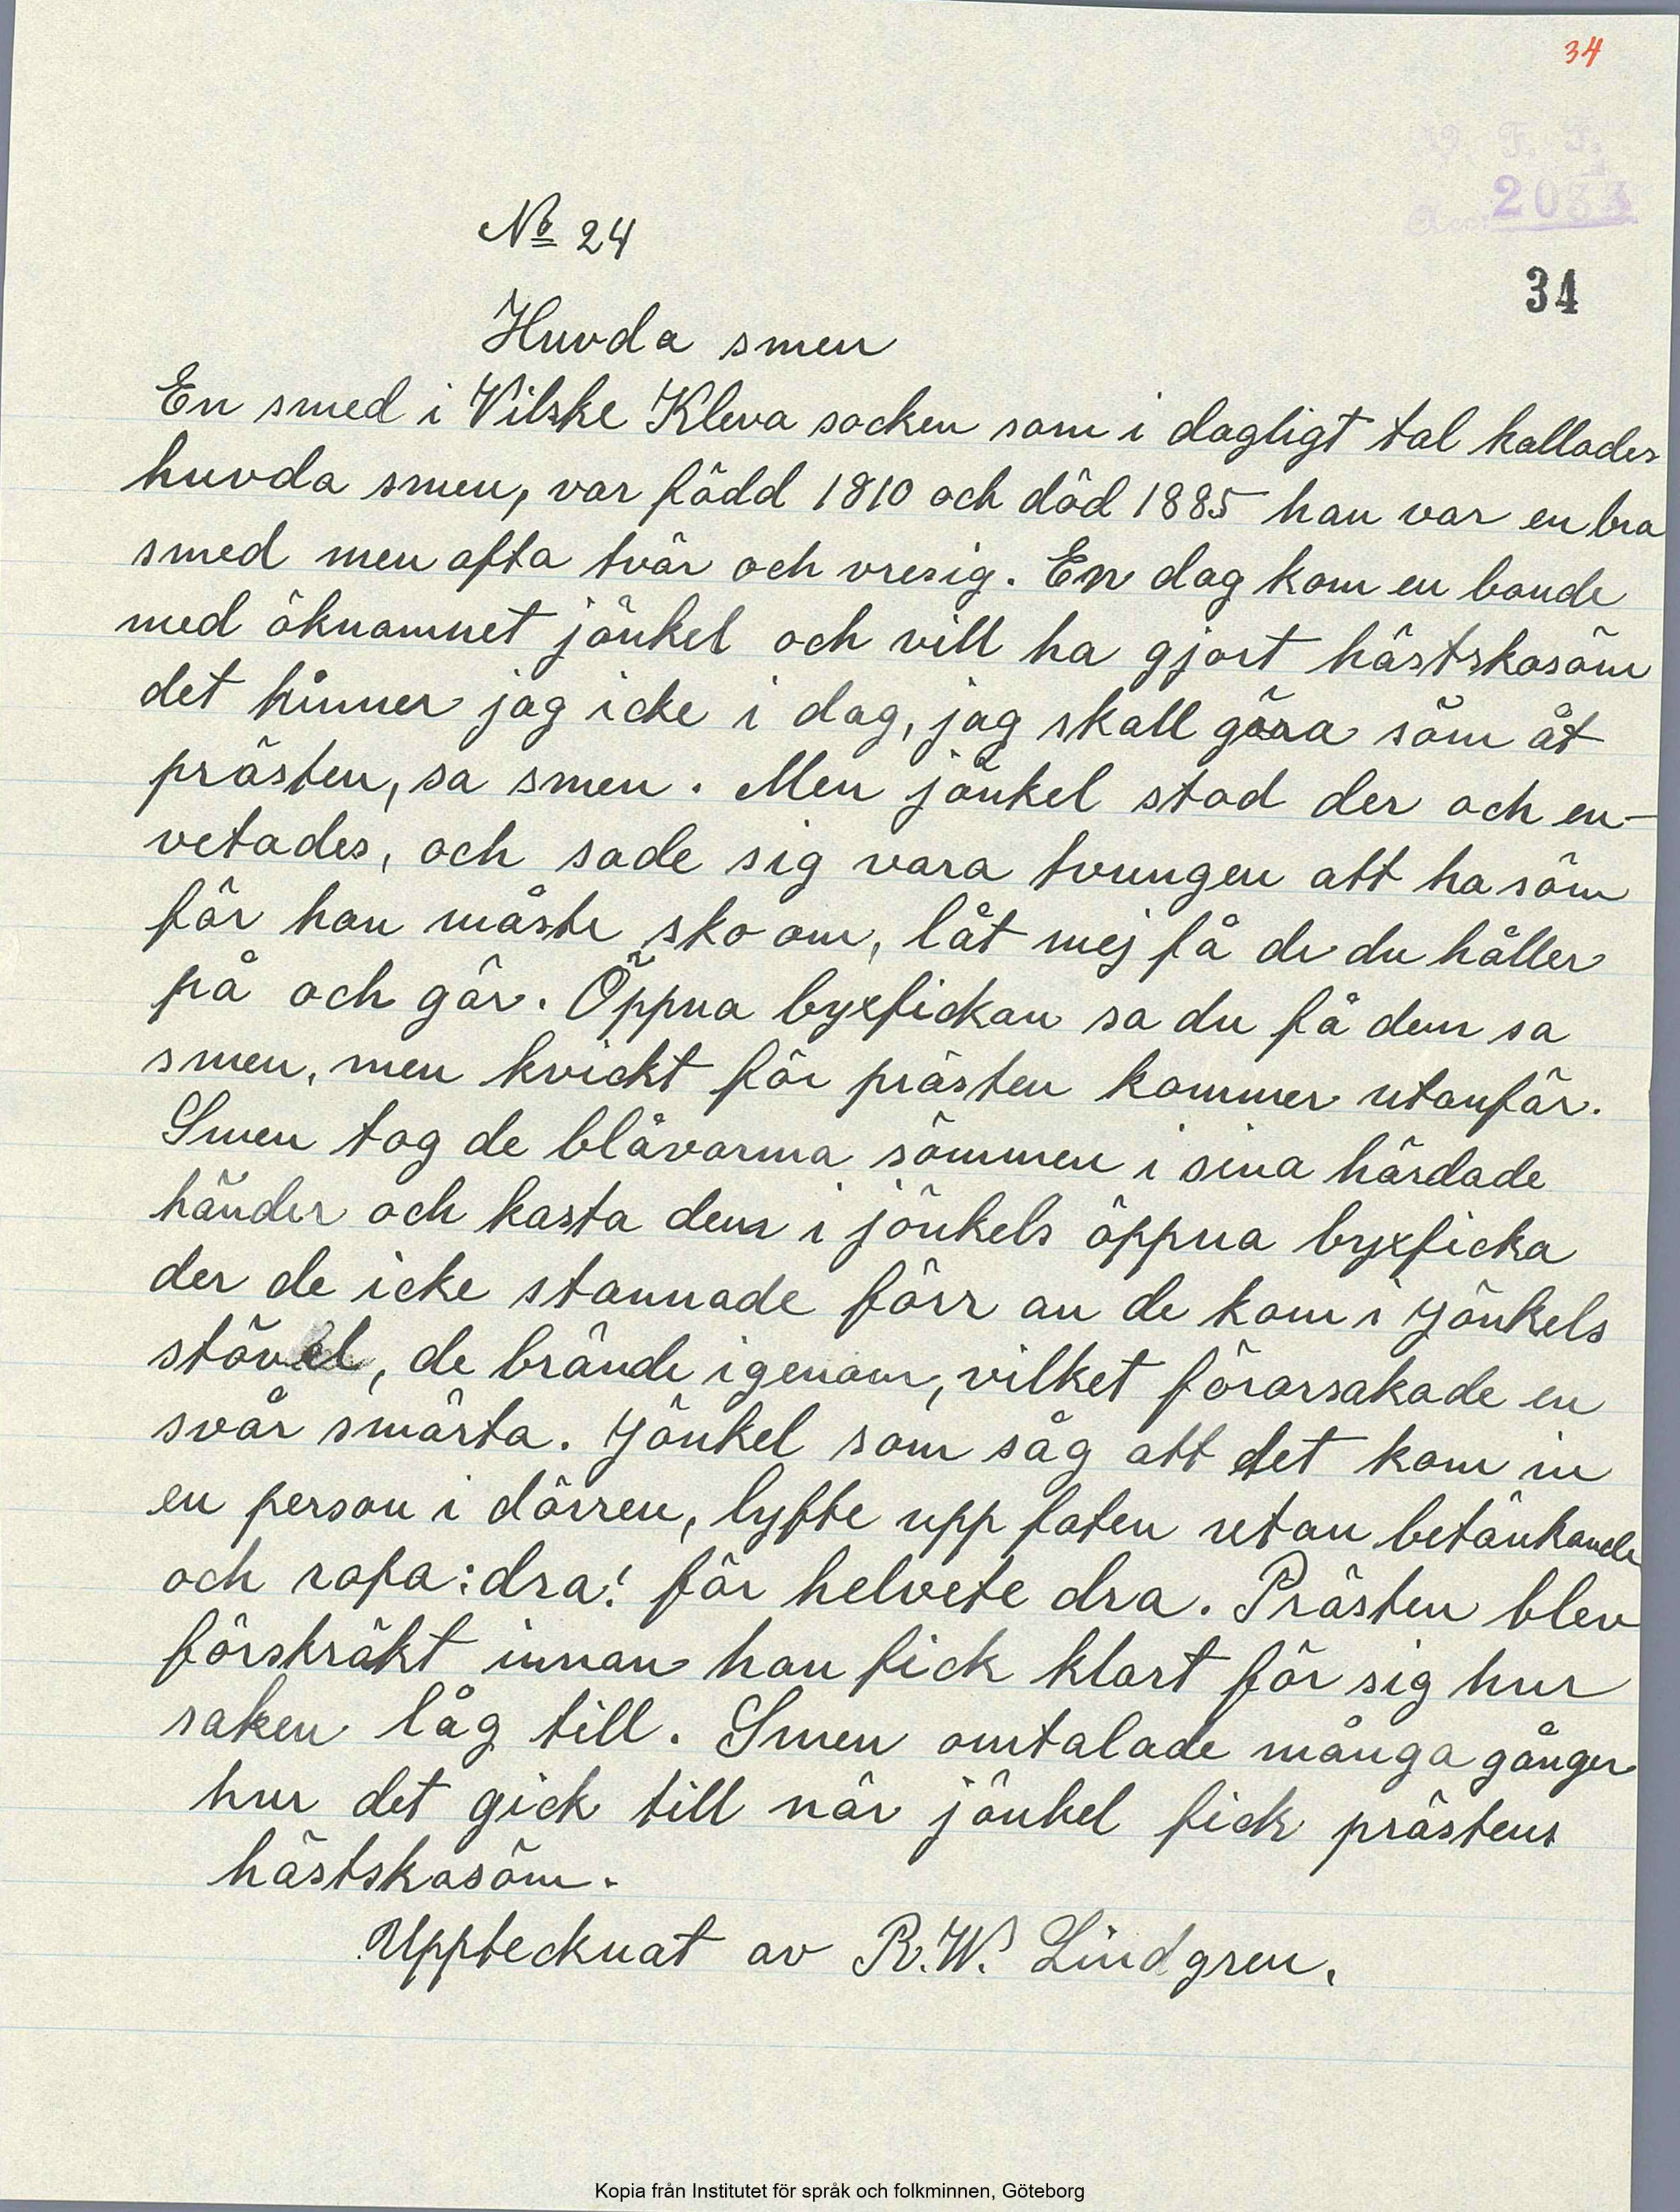 34
V. F. F.
Acc. 2033
34
No 24
Huvda smen
En smed i Vilske Kleva socken som i dagligt tal kallades
huvda smen, var född 1810 och död 1885 han var en bra
smed men ofta tvär och vresig. En dag kom en bonde
med öknamnet jönkel och vill ha gjort hästskosöm
det hinner jag icke i dag, jag skall göra söm åt
prästen, sa smen. Men jönkel stod der och en-
vetades, och sade sig vara tvungen att ha söm
för han måste sko om, låt mej få de du håller
på och gör. Öppna byxfickan sa du få dem sa
smen, men kvickt för prästen kommer utanför.
Smen tog de blåvarma sömmen i sina härdade
händer och kasta dem i jönkels öppna byxficka
der de icke stannade förr an de kom i Jönkels
stövel, de brände igenom, vilket förorsakade en
svår smärta. Jönkel som såg att det kom in
en person i dörren, lyfte upp foten utan betänkande
och ropa: dra! för helvete dra. Prästen blev
förskräkt innan han fick klart för sig hur
saken låg till. Smen omtalade många gånger
hur det gick till när jönkel fick prästens
hästskosöm.
Upptecknat av R.W. Lindgren.
Kopia från Institutet för språk och folkminnen, Göteborg